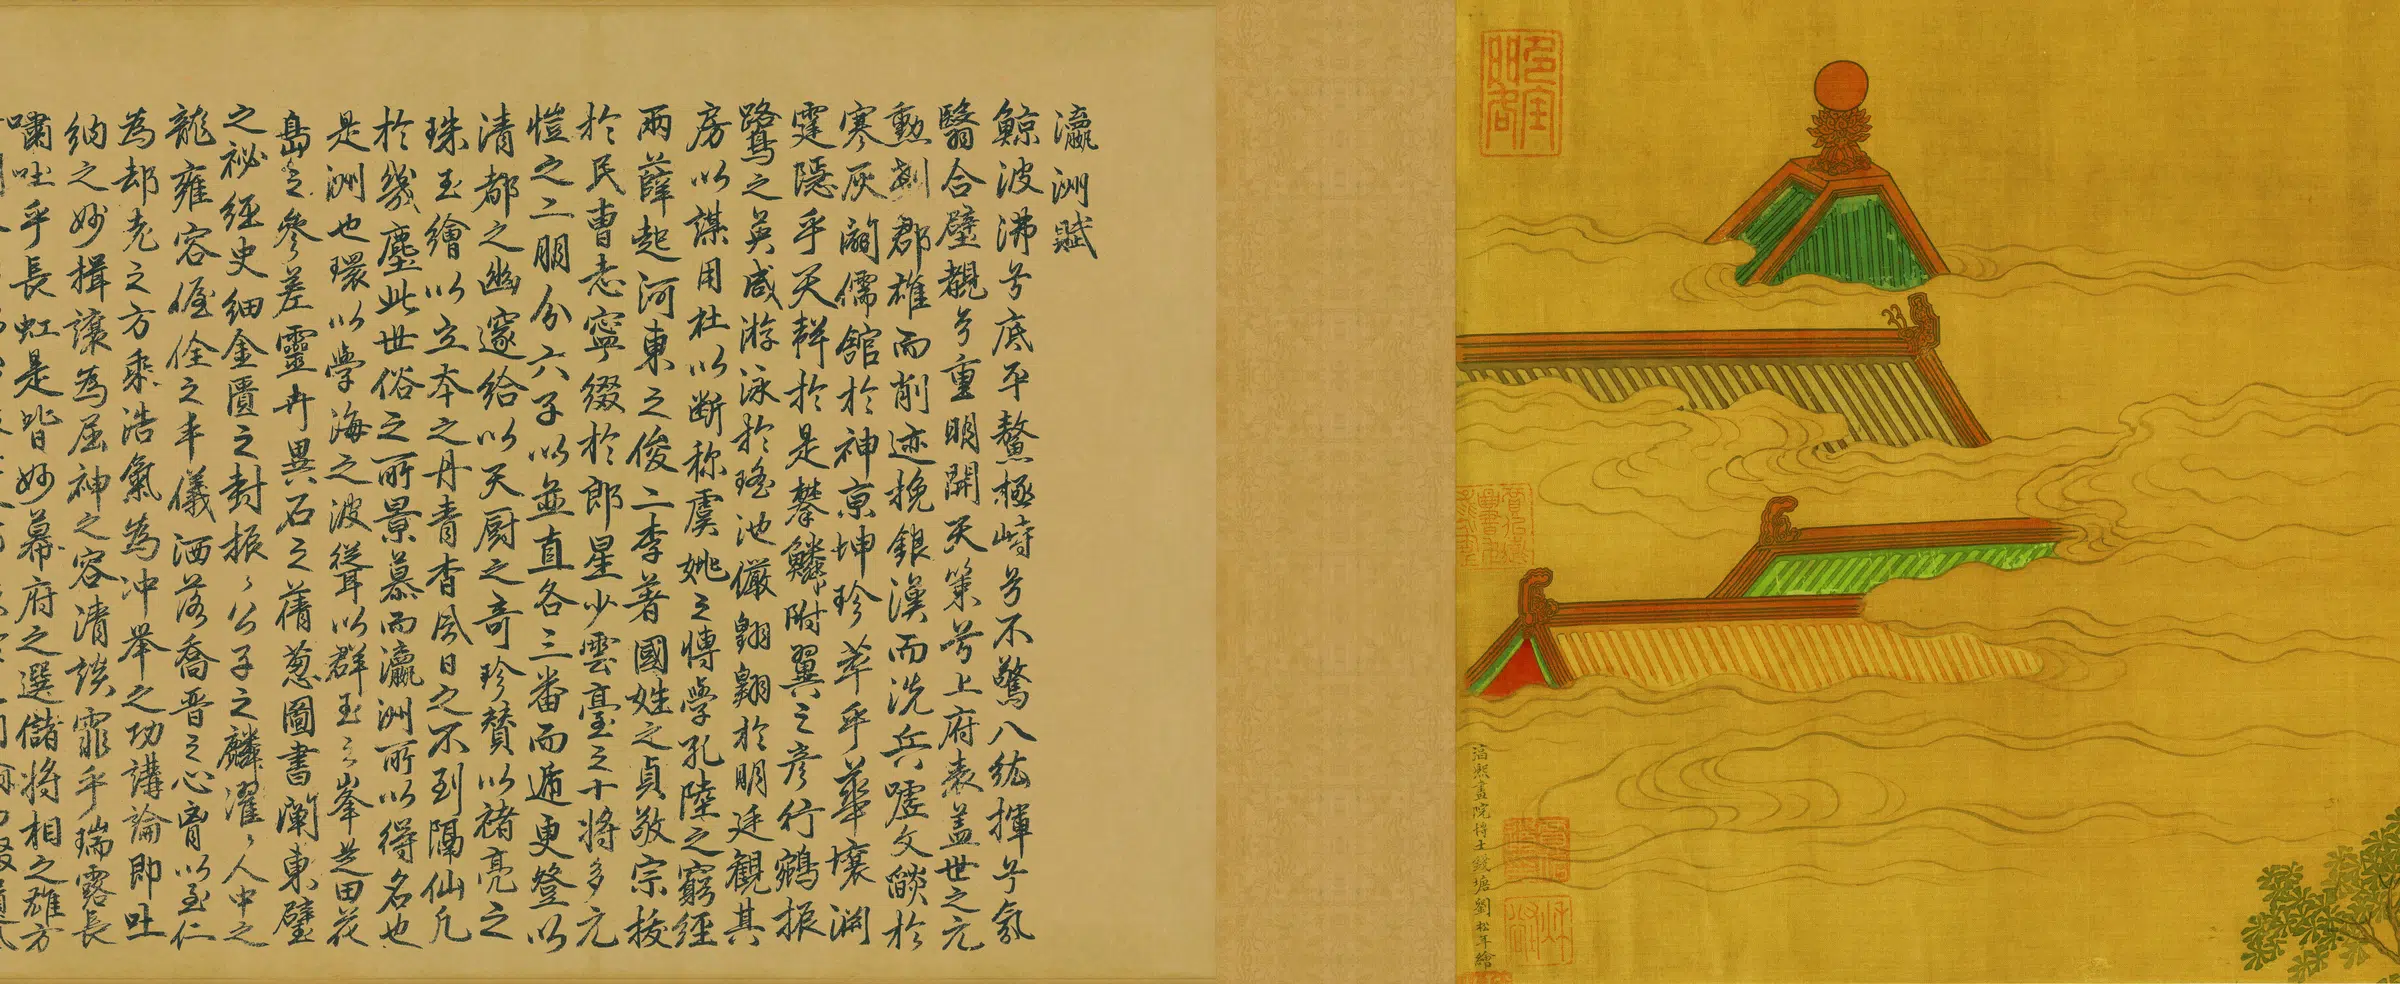 淳熙畫院博士錢塘劉松年繪
瀛洲賦
鯨波沸兮底平鰲極峙兮不驚八紘揮兮氛
翳合璧覩兮重明開天策兮上府表蓋世之元
勳剗郡雄而削迹挽銀漢而洗兵噓文燄於
寒灰闢儒舘於神京坤珍萃乎華壤淵
霆隱乎天於是攀鱗附翼之彥行鵷振
鷺之英咸游泳於瑤池儼翱翔於明廷觀其
房以謀用杜以断称虞姚之博學孔陸之窮經
兩薛起河東之俊二李著國姓之貞敬宗拔
於民曹志寧綴於郎星少雲臺之十將多元
愷之二朋分六子以並直各三番而遞更登以
清都之幽邃給以天厨之奇珍贊以褚亮之
珠玉繪以立本之丹青杳风日之不到隔仙凡
於幾塵此世俗之所景慕而瀛洲所以得名也
是洲也環以學海之波聳以群玉之峯芝田花
島之參差靈卉異石之蒨葱圖書蘭東壁
之祕經史細金匱之封振〻公子之麟濯〻人中之
龍雍容偓佺之丰儀洒落喬晋之心胷以至仁
為却老之方乘浩氣為冲举之功講論即吐
納之妙揖讓為屈神之容清談霏乎瑞露長
嘯吐乎長虹是皆妙幕府之選儲将相之雄方